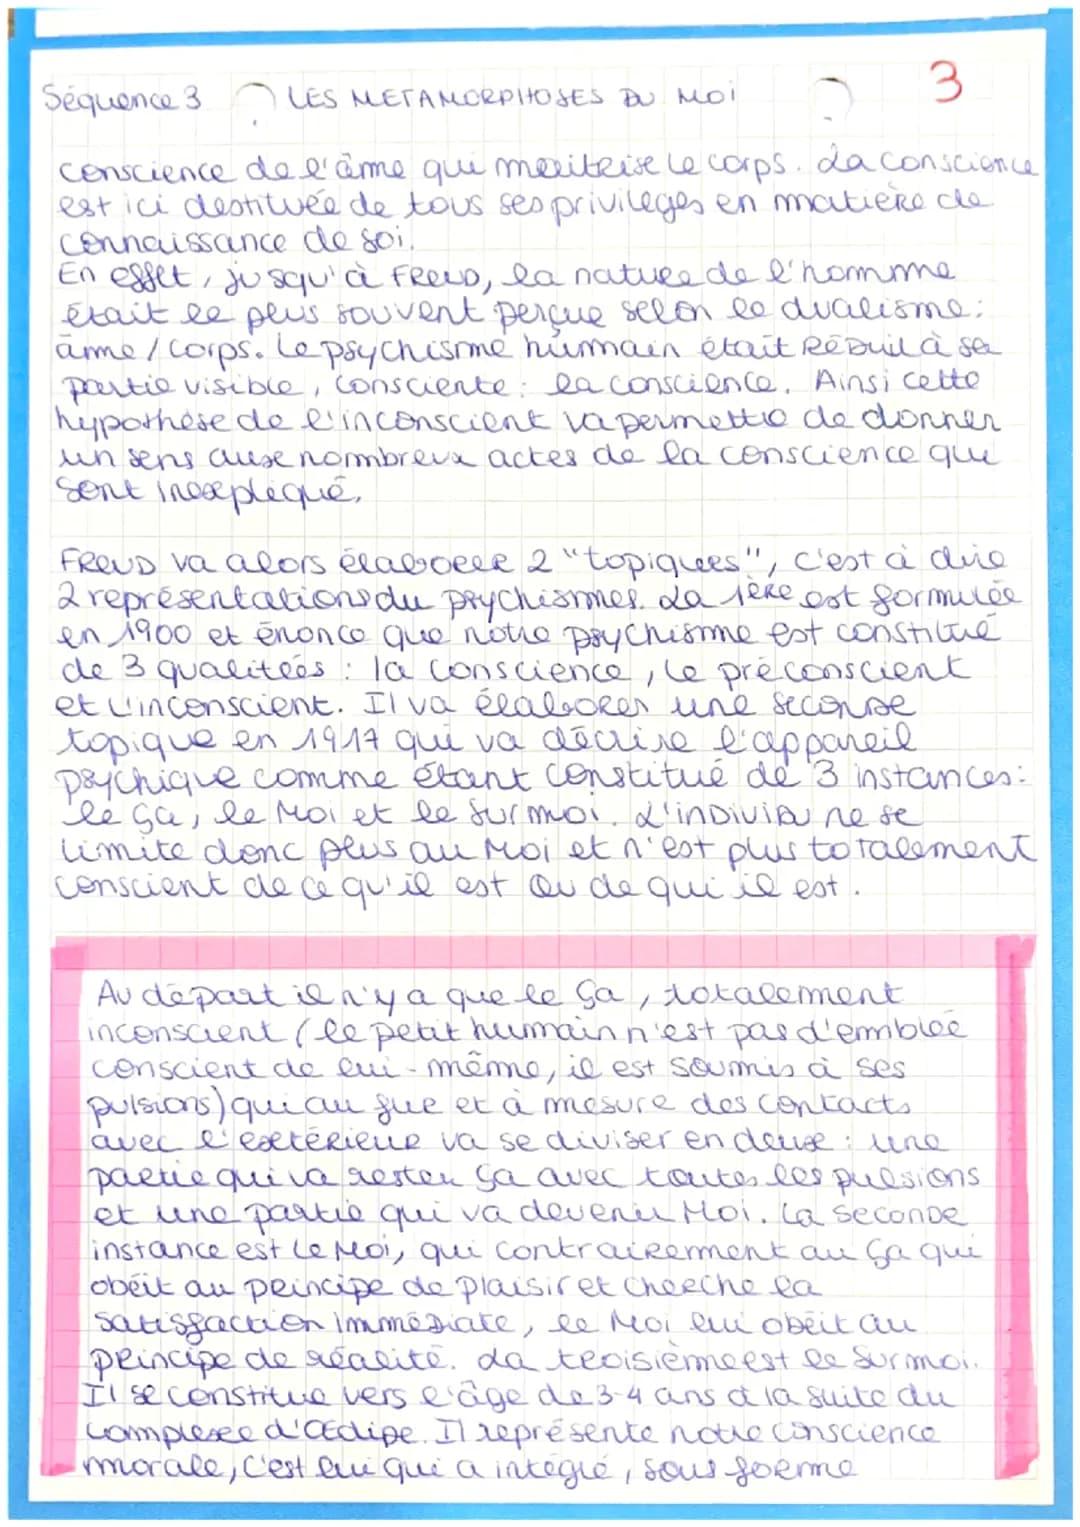 Séquence 3 LES METAMORPHOSES DU MOI 3
conscience de l'âme qui maitrise le corps. La conscience
est ici destituée de tous ses privilèges en matière de
connaissance de soi.
En effet, jusqu'à FREUD, la nature de l'homme
était le plus souvent perçue selon le dualisme:
âme/corps. Le psychisme humain était RÉDUIT à sa
partie visible, consciente: la conscience. Ainsi cette
hypothèse de l'inconscient va permettre de donner
un sens aux nombreux actes de la conscience qui
sont inexpliqué.
FREUD va alors élaborer 2 "topiques", c'est à dire
2 représentations du psychismes. La 1ère est formulée
en 1900 et énonce que notre psychisme est constitué
de 3 qualitées: la conscience, le préconscient
et l'inconscient. Il va élaborer une seconde
topique en 1917 qui va décrire l'appareil
psychique comme étant constitué de 3 instances:
le ça, le Moi et le Surmoi. L'INDIVIDU ne se
limite donc plus au Moi et n'est plus totalement
conscient de ce qu'il est ou de qui il est.
Au départ il n'y a que le ça, totalement
inconscient (le petit humain n'est pas d'emblée
conscient de lui-même, il est soumis à ses
pulsions) qui au fur et à mesure des contacts
avec l'extérieur va se diviser en deux: une
partie qui va rester ça avec toutes les pulsions
et une partie qui va devenir Moi. La seconde
instance est le Moi, qui contrairement au ça qui
obéit au principe de plaisir et cherche la
satisfaction immédiate, le Moi lui obéit au
principe de réalité. La troisième est le Surmoi.
Il se constitue vers l'âge de 3-4 ans à la suite du
complexe d'Œdipe. Il représente notre conscience
morale, c'est lui qui a intégré, sous forme